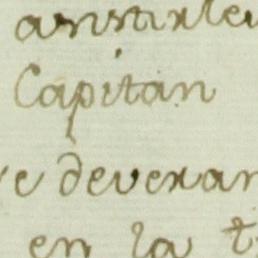 Capitan
deveran
en la t